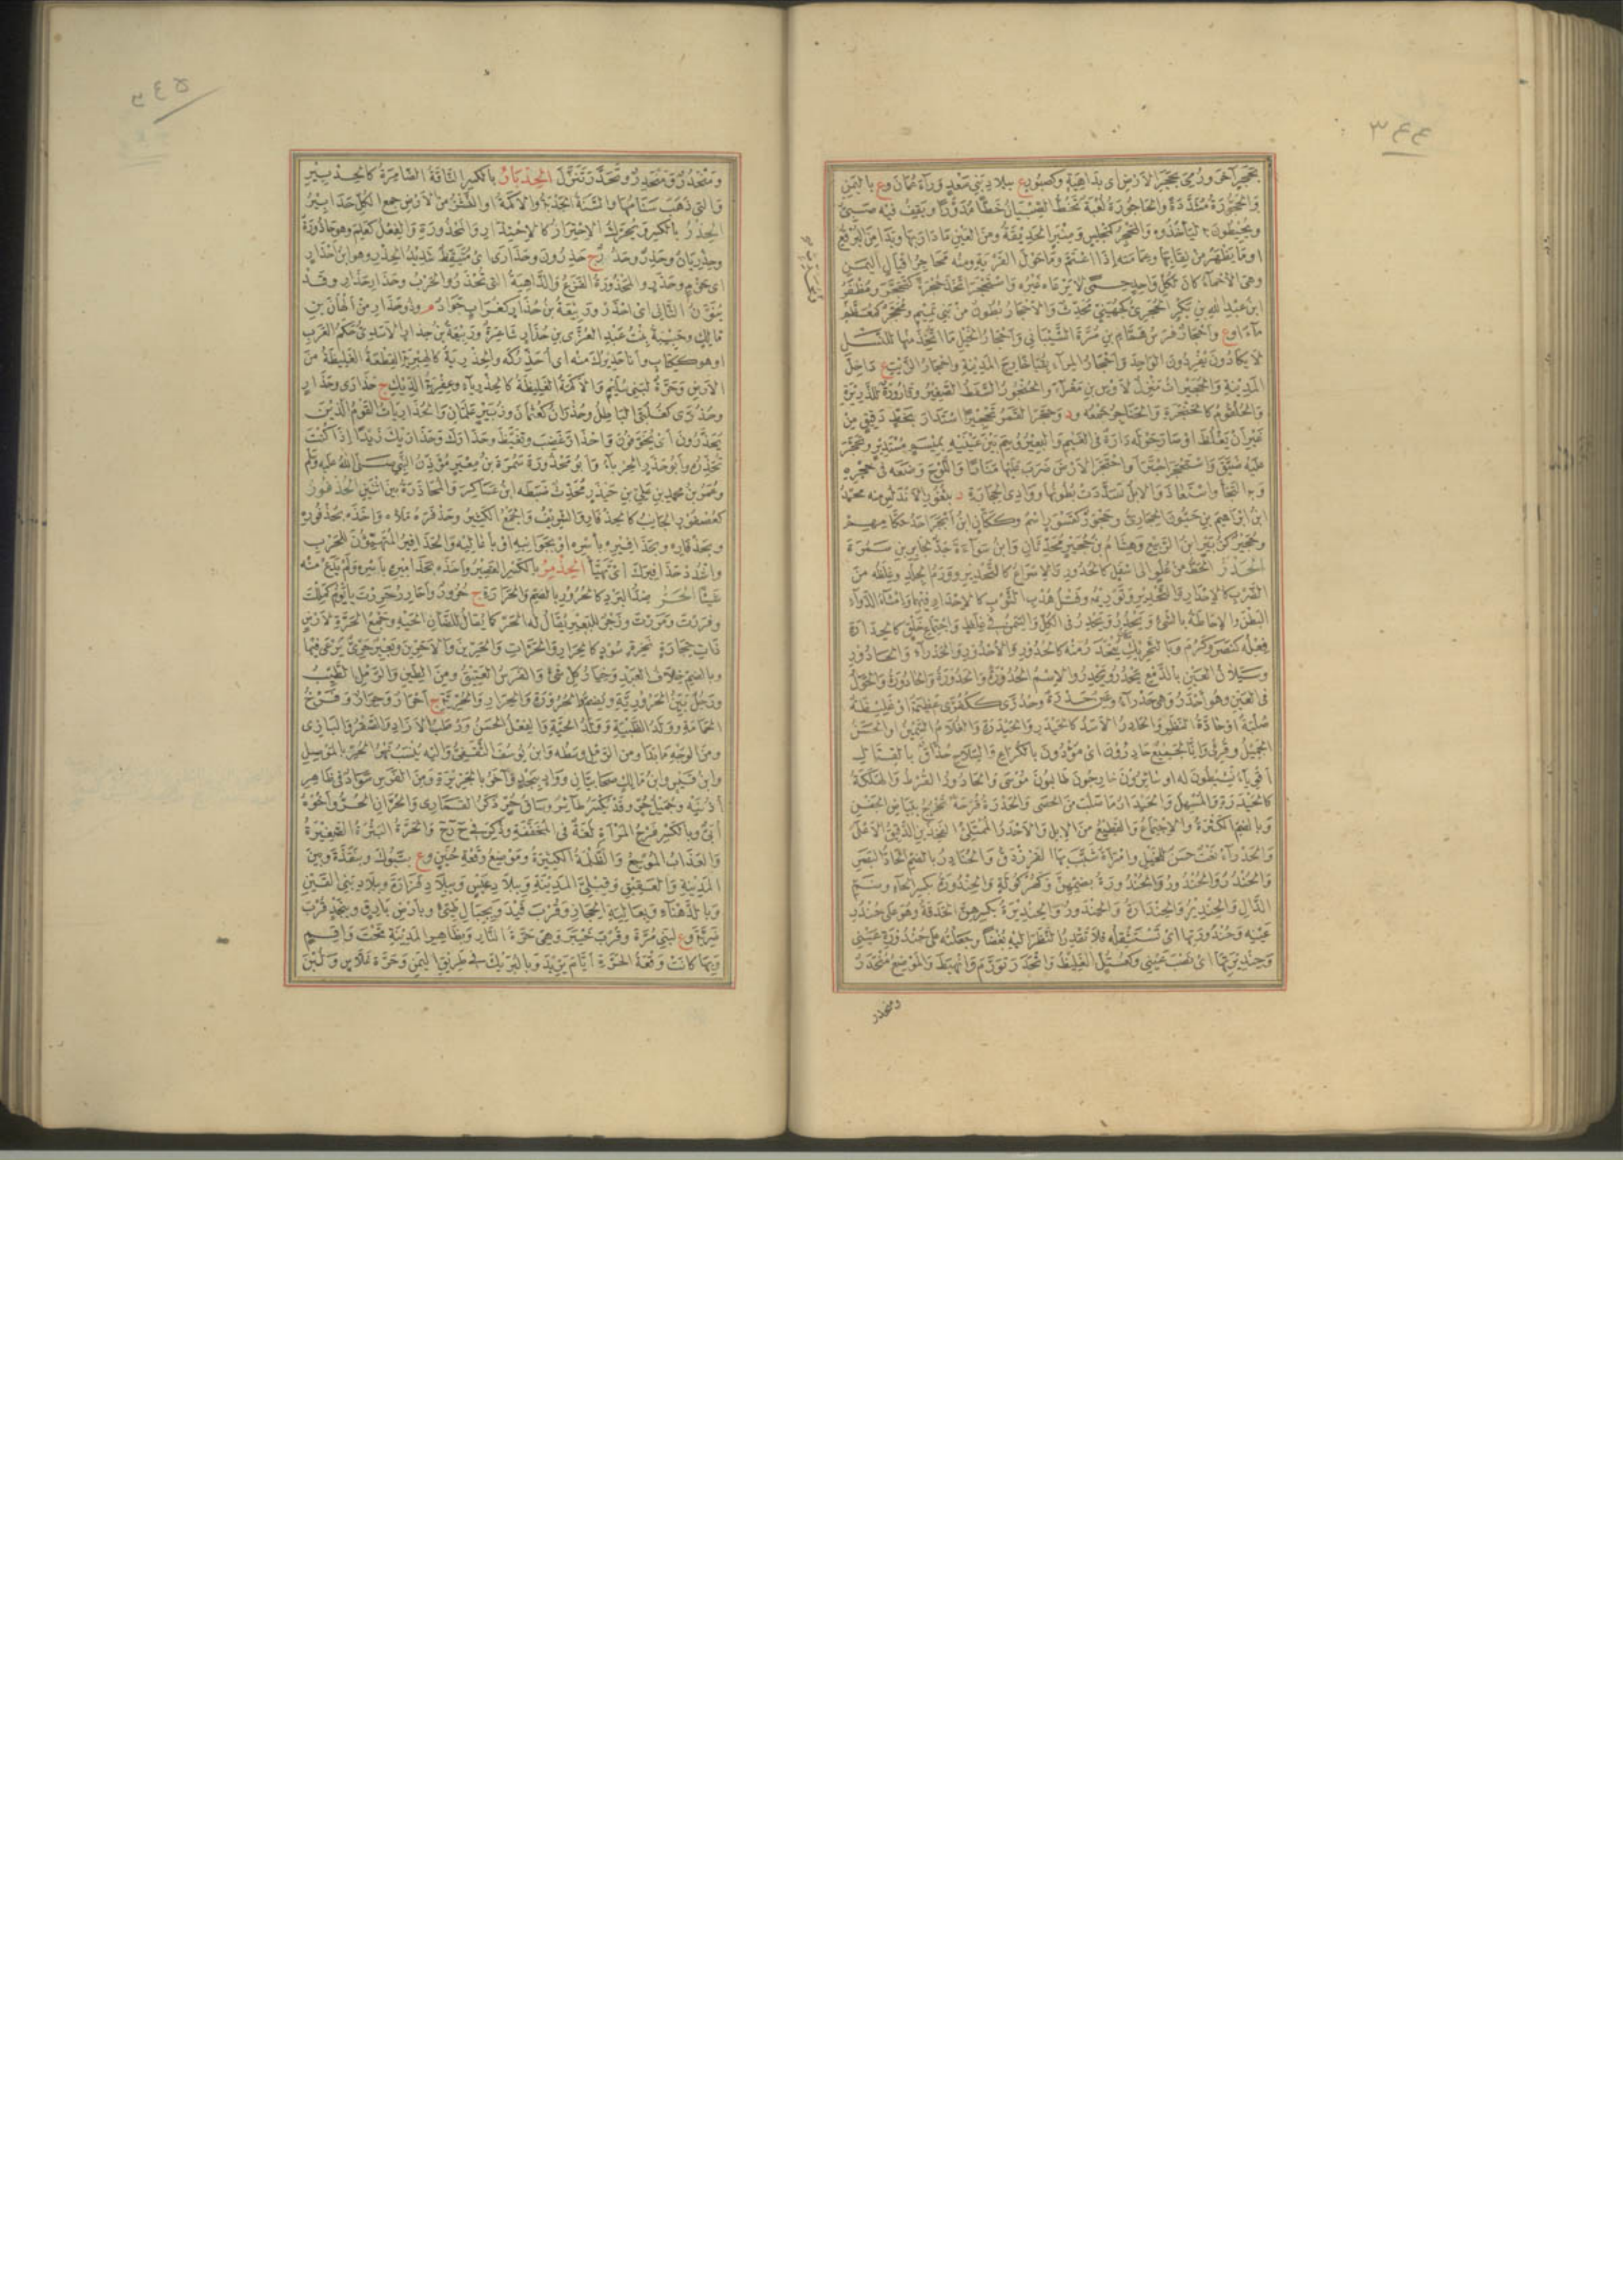 ٣٤٤
بحجر آخر ورمى بحجر الارض اى بداهية وكصبور ع ببلاد بنى سعد ورآء عمان وع باليمن
والحجورة مشددة والحاجورة لعبة تخط الصبيان خطا مدورا ويقف فيه صبى
ويحيطون به لياخذوه والمحجر كمجلس ومنبر الحديقة ومن العين ما دار بها وبدا من البرقع
او ما يظهر من نقابها وعمامته اذا اعتم وما حول القرية ومنه محاجر اقيال اليمن
وهى الاحمآء كان لكل واحد حمى لا يرعاه غيره واستحجر اتخذ حجرة كتحجر ومظفر
ابن عبد الله بن بكر الحجرى كجهينى محدث والاحجار بطون من بنى تميم ومحجر كمعظم
مآء اوع واحجار فرس همام بن مرة الشيبانى واحجار الخيل ما اتخذ منها للنسل
لا يكادون يفردون الواحد واحجار المرآء بقبا خارج المدينة واحجار الزيت ع داخل
المدينة والحجيرات منزل لاوس بن مغرآء والحنجور السفط الصغير وقارورة للذريرة
والحلقوم كالحنجرة والحناجر جمعه ود وحجر القمر تحجيرا استدار بخط دقيق من
غير ان يغلظ او صار حوله دارة فى الغيم والبعير وسم بين عينيه بميسم مستدير وتحجر
عليه ضيق واستحجر اجترا واحتجر الارض ضرب عليها منارا واللوح وضعه فى حجره
وبه التجأ واستعاذ والابل تشددت بطونها ووادى الحجارة د بثغور الاندلس منه محمد
ابن ابراهيم بن حيون الحجارى وحجور كقسور اسم وككتان ابن ابجر احد حكامهم
وحجير كزبير ابن الربيع وهشام بن حجير محدثان وابن سوآءة جد لجابر بن سمرة
الحدر الحط من علو الى اسفل كالحدور والاسراع كالتحدير وورم الجلد وغلظه من
الضرب كالاحدار والتحدير وتوريمه وفتل هدب الثوب كالاحدار فيهما وامشآء الدوآء
البطن والاحاطة بالشئ ويحدر ويحدر فى الكل والسمن فى غلظ واجتماع خلق كالحدارة
فعله كنصر وكرم وبالتحريك يتحدر منه كالحدور والاحدور والحدرآء والحادور
وسيلان العين بالدمع يحدر ويحدر والاسم الحدورة والحدورة والحادورة والحول
فى العين وهو احدر وهى حدرآء وعين حدرة وحدرى ككفرى عظيمة او غليظة
صلبة او حادة النظر والحادر الاسد كالحيدر والحيدرة والغلام السمين او الحسن
الجميل وقرئ وانا لجميع حادرون اى مؤدون بالكراع والسلاح حذاق بالقتال
اقويآء نشيطون له او سائرون خارجون طالبون موسى والحادور القرط والهلكة
كالحيدرة والمسهل والحيدار ما صلب من الحصى والحدرة قرحة تخرج ببياض الجفن
وبالضم الكثرة والاجتماع والقطيع من الابل والاحدر الممتلئ الفخذين الدقيق الاعلى
والحدرآء نعت حسن للخيل وامرآة شبب بها الفرزدق والحنادر بالضم الحاد البصر
والحندر والحندور والحندورة بضمهن وكهركولة والحندورة بكسر الحآء وضم
الدال والحندير والحندارة والحندور والحنديرة بكسرهن الحدقة وهو على حندر
عينه وحندورتها اى تستثقله فلا تقدر ان تنظر اليه بغضا وجعلته على حندورة عينى
وحنديرتها اى نصب عينى وكعتل الغليظ وانحدر تورم وانهبط والموضع منحدر
ومنحدر
٣٤٥
ومنحدر ومنحدر وتحدر تنزل الحدبار بالكسر الناقة الضامرة كالحدبير
والتى ذهب سنامها والسنة الجدبة والاكمة او النشز من الارض جمع الكل حدابير
الحذر بالكسر ويحرك الاحتراز كالاحتذار والمحذورة والفعل كعلم وهو حاذورة
وحذريان وحذر وحذر ج حذرون وحذارى اى متيقظ شديد الحذر وهو ابن احذار
اى حزم وحذر والمحذورة الفزع والداهية التى تحذر والحرب وحذار حذار وقد
ينون الثانى اى احذر وربيعة بن حذار كغراب جواد م وذو حذار من الهان بن
مالك وحبيبة بنت عبد العزى بن حذار شاعرة وربيعة بن حذار الاسدى حكم العرب
او هو ككتاب وانا حذيرك منه اى احذركه والحذرية كالهبرية القطعة الغليظة من
الارض وحرة لبنى سليم والاكمة الغليظة كالحذريآء وعفرية الديك ج حذارى وحذار
وحذرى كغلبى الباطل وحذران كعثمان وزبير علمان والحذاريات القوم الذين
يحذرون اى يخوفون واحذار غضب وتغيظ وحذارك وحذاريك زيدا اذا كنت
تحذره وابو حذر الحربآء وابو محذورة سمرة بن معير مؤذن النبى صلى الله عليه وسلم
وعمر بن محمد بن على بن حيذر محدث ضبطه ابن عساكر والمحاذرة بين اثنين الحذفور
كعصفور الجانب كالحذفار والشريف والجمع الكثير وحذفره ملاه واخذه بحذفوره
وبحذفاره وبحذافيره باسره او بجوانبه او باعاليه والحذافير المتهيئون للحرب
واشدد حذافيرك اى تهيأ الحذمر بالكسر القصير واخذه بحذاميره باسره ولم يدع منه
شيئا الحر ضد البرد كالحرور بالضم والحرارة ج حرور واحار وحررت يا يوم كمللت
وفررت ومررت وزجر للبعير يقال له الحر كما يقال للضأن الحيه وجمع الحرة لارض
ذات حجارة نخرة سود كالحرار والحرات والحرين والاحرين وبعير حرى يرعى فيها
وبالضم خلاف العبد وخيار كل شئ والفرس العتيق ومن الطين والرمل الطيب
ورجل بين الحرورية ويضم كالحرورة والحرار والحرية ج احرار وحرار وفرخ
الحمامة وولد الظبية وولد الحية والفعل الحسن ورطب الازاذ والصقر والبازى
ومن الوجه ما بدا ومن الرمل وسطه وابن يوسف الثقفى واليه ينسب نهر الحر بالموصل
وابن قيس وابن مالك صحابيان وواد بنجد وآخر بالجزيرة ومن الفرس سواد فى ظاهر
اذنيه وجميل حر وقد يكسر طائر وساق حر ذكر القمارى والحران الحر واخوه
ابى وبالكسر فرج المرآة لغة فى المخففة وذكر فى ح ر ح والحرة البثرة الصغيرة
والعذاب الموجع والظلمة الكثيرة وموضع وقعة حنين وع بتبوك وبنقدة وبين
المدينة والعقيق وقبلى المدينة وببلاد عبس وببلاد فزارة وببلاد بنى القين
وبالدهنآء وبعالية الحجاز وقرب فيد وبجبال طيئ وبارض بارق وبنجد قرب
ضرية وع لبنى مرة وقرب خيبر وهى حرة النار وبظاهر المدينة تحت واقم
وبها كانت وقعة الحرة ايام يزيد وبالبريك فى طريق اليمن وحرة غلاس ولبن